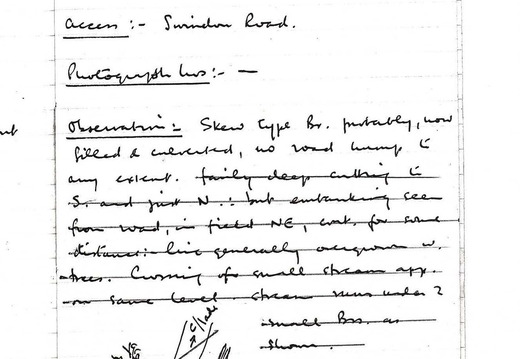 Access :- Swindon Road.
Photograph Nos :- —
Observation :- Skew type Br. probably, now
filled & culverted, no road hump to
any extent. fairly deep cutting to
S. and just N. :- but embanking seen
from road, in field NE, cont. for some
distance :- line generally overgrown w.
trees. Crossing of small stream app.
on same level. stream runs under 2
small Brs. as
shown.